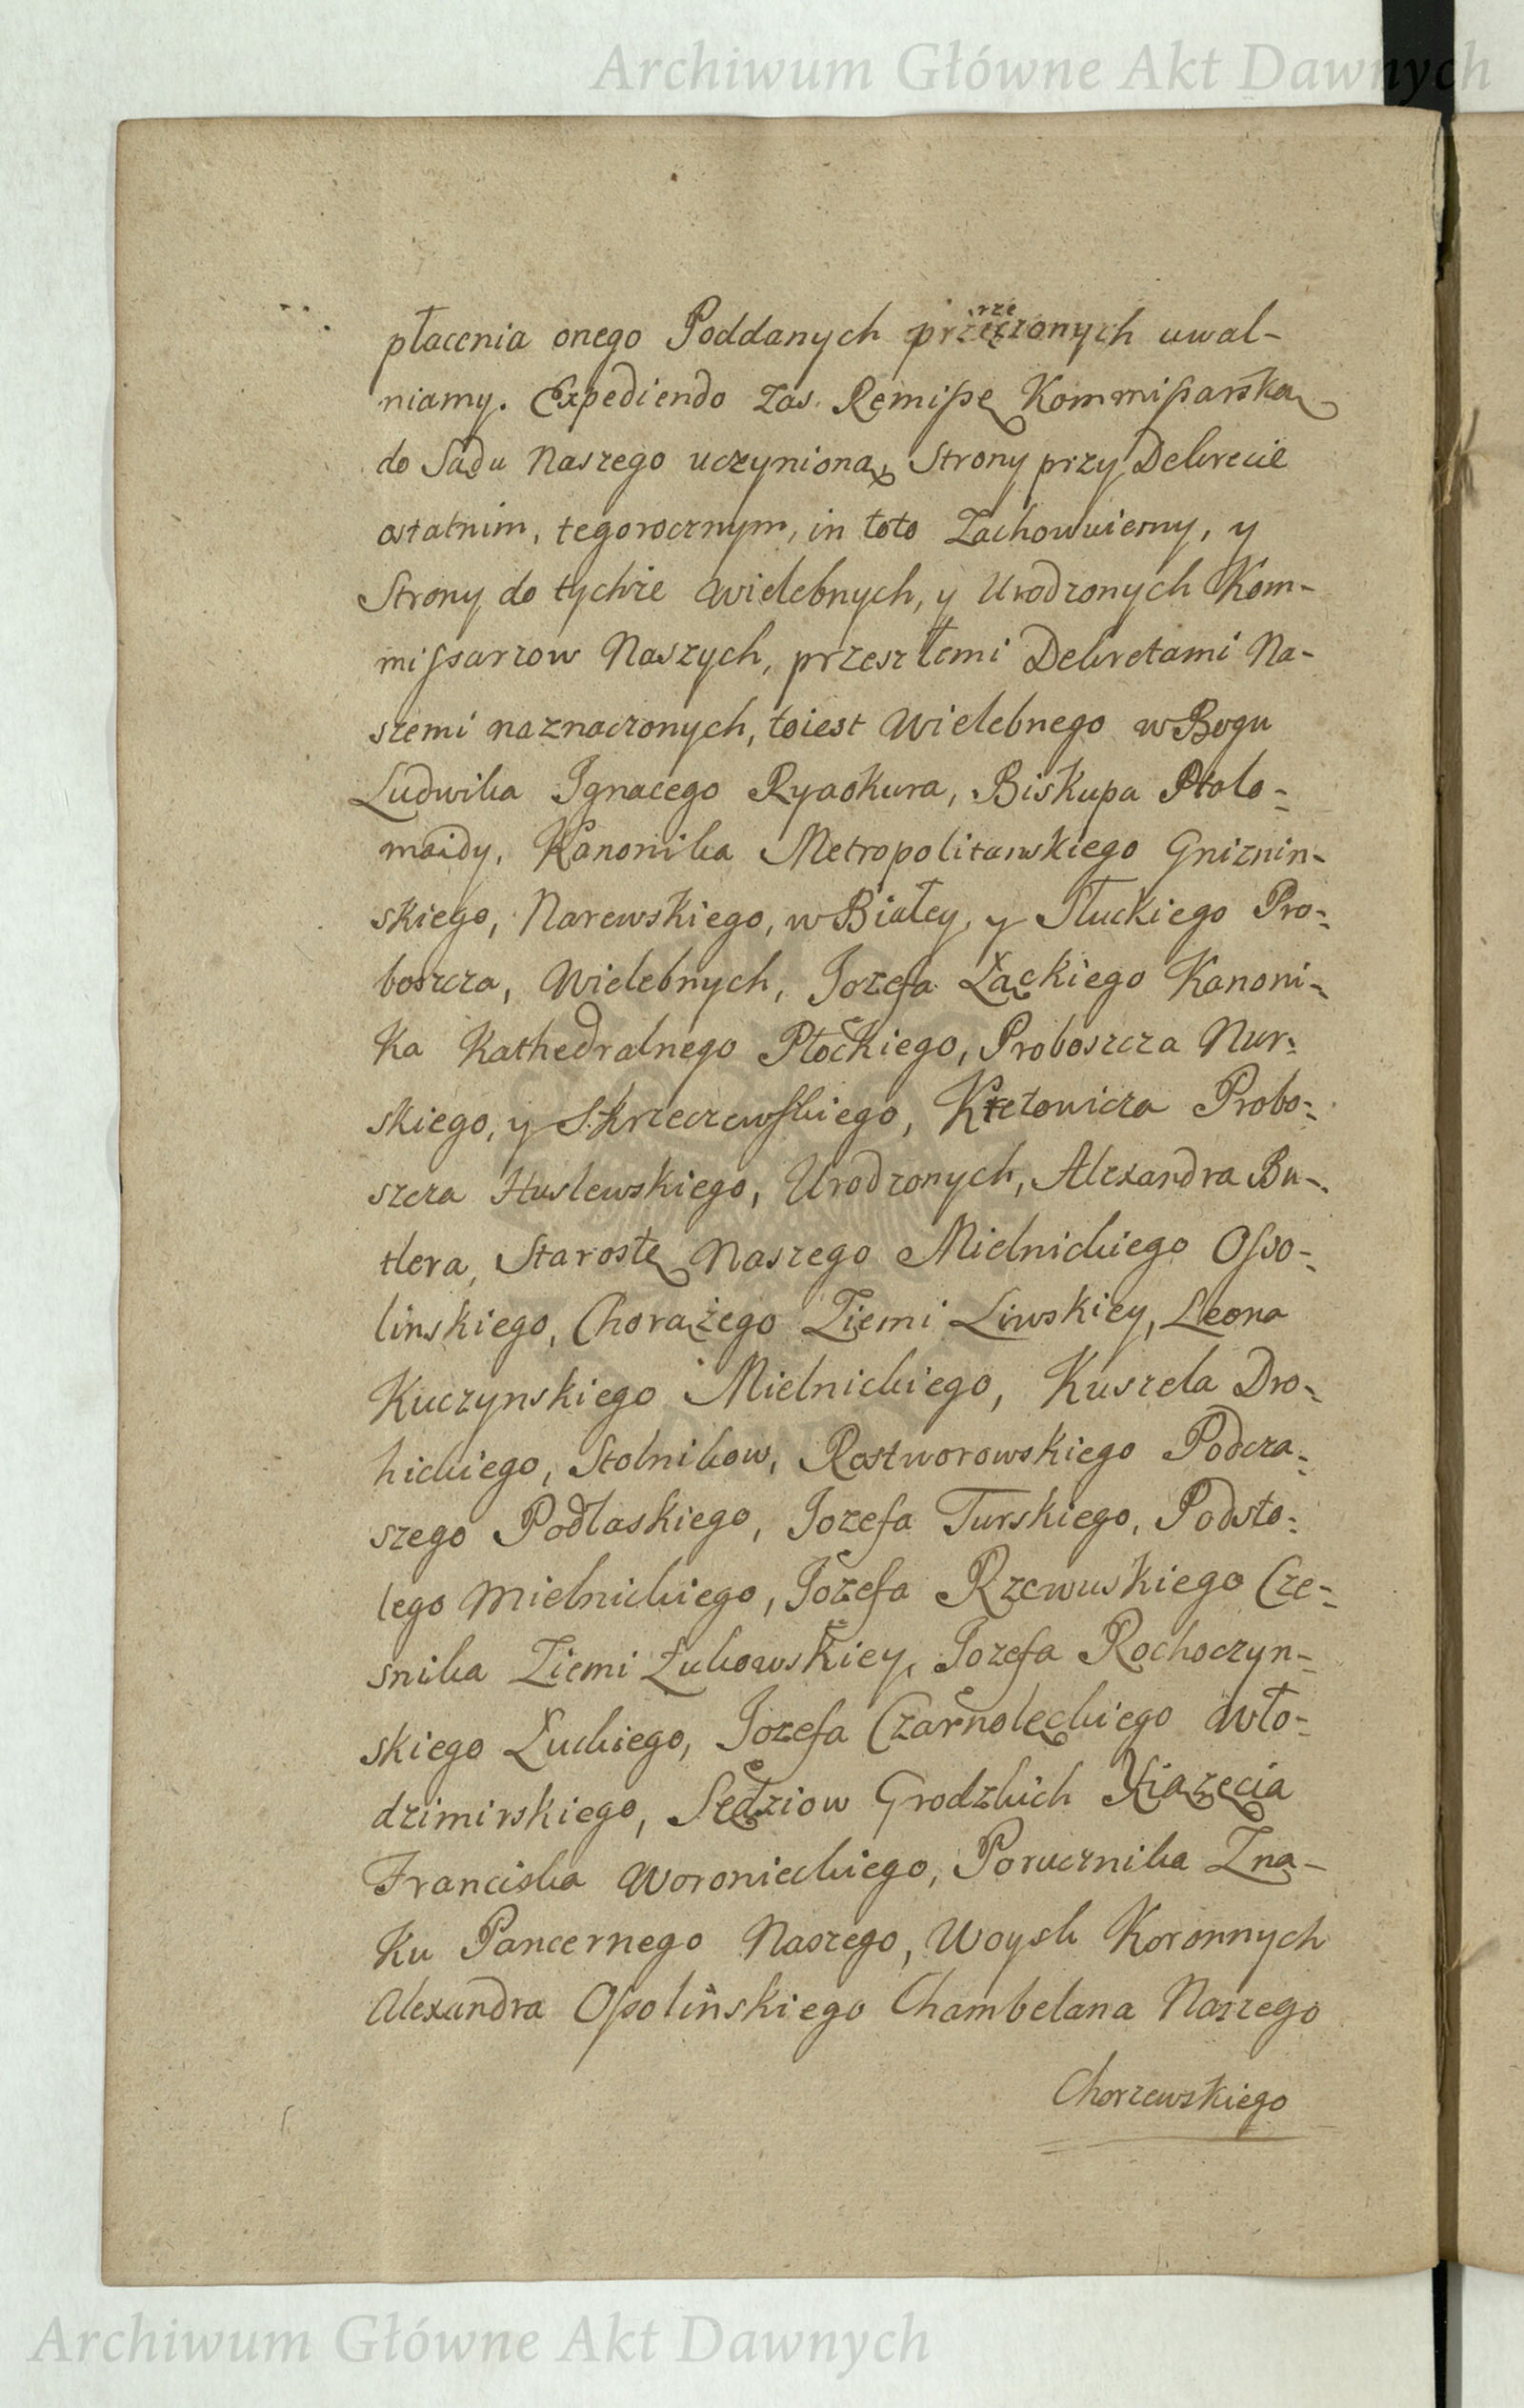 Archiwum Główne Akt Dawnych
płacenia onego Poddanych przerzeczonych uwal-
niamy. Expediendo zas Remissę Kommissarską
do Sądu Naszego uczynioną, Strony przy Dekrecie
ostatnim, tegorocznym, in toto Zachowuiemy, y
Strony do tychże Wielebnych, y Urodzonych Kom-
missarzow Naszych, przeszłemi Dekretami Na-
szemi naznaczonych, toiest Wielebnego w Bogu
Ludwika Ignacego Ryaokura, Biskupa Ptolo-
maidy, Kanonika Metropolitanskiego Gniznin-
skiego, Narewskiego, w Białey, y Słuckiego Pro-
boszcza, Wielebnych, Jozefa Łąckiego Kanoni-
ka Kathedralnego Płockiego, Proboszcza Nur-
skiego, y Skrzeczewskiego, Kretowicza Probo-
szcza Huslewskiego, Urodzonych, Alexandra Bu-
tlera, Starostę Naszego Mielnickiego Osso-
linskiego, Chorążego Ziemi Liwskiey, Leona
Kuczynskiego Mielnickiego, Kuszela Dro-
hickiego, Stolnikow, Rostworowskiego Podcza-
szego Podlaskiego, Jozefa Turskiego, Podsto-
lego Mielnickiego, Jozefa Rzewuskiego Cze-
snika Ziemi Łukowskiey, Jozefa Rochoczyn-
skiego Łuckiego, Jozefa Czarnoleckiego Wło-
dzimirskiego, Sędziow Grodzkich Xiążęcia
Franciska Woronieckiego, Porucznika Zna-
ku Pancernego Naszego, Woysk Koronnych
Alexandra Ossolińskiego Chambelana Naszego
Chorzewskiego
Archiwum Główne Akt Dawnych